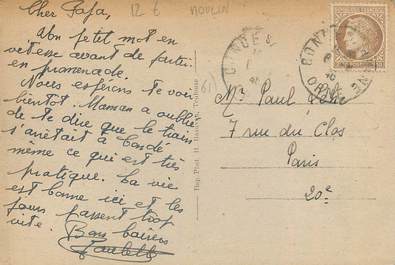 12 6 MOULIN
Cher Papa,
Un petit mot en
vitesse avant de partir
en promenade.
Nous espérons te voir
bientôt. Maman a oublié
de te dire que le train
s'arrêtait à Condé
même ce qui est très
pratique. La vie
est bonne ici et les
jours passent trop
vite.
Bons baisers
Paulette
CONDÉ
ORNE
Mr Paul
7 rue du Clos
Paris
20e